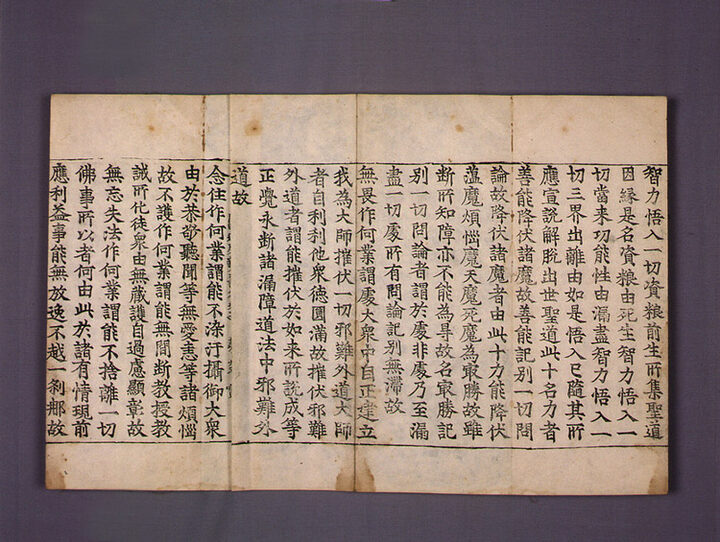 智力悟入一切資粮前生所集聖道
因緣是名資粮由死生智力悟入一
切當来功能性由漏盡智力悟入一
切三界出離由如是悟入已隨其所
應宣說解脫出世聖道此十名力者
善能降伏諸魔故善能記別一切問
論故降伏諸魔者由此十力能降伏
蕴魔煩惱魔天魔死魔為最勝故雖
断所知障亦不能為㝵故名最勝記
別一切問論者謂於處非處乃至漏
盡一切處所有問論記別無滯故
無畏作何業謂處大衆中自正建立
我為大師摧伏一切邪難外道大師
者自利利他衆德圎滿故摧伏邪難
外道者謂能摧伏於如来所說成等
正覺永断諸漏障道法中邪難外
道故
念住作何業謂能不染汙攝御大衆
由於恭敬聽聞等無愛恚等諸煩惱
故不護作何業謂能無間断教授教
誡所化徒衆由無蔵護自過慮顯彰故
無忘失法作何業謂能不捨離一切
佛事所以者何由此於諸有情現前
應利益事能無放逸不越一刹那故